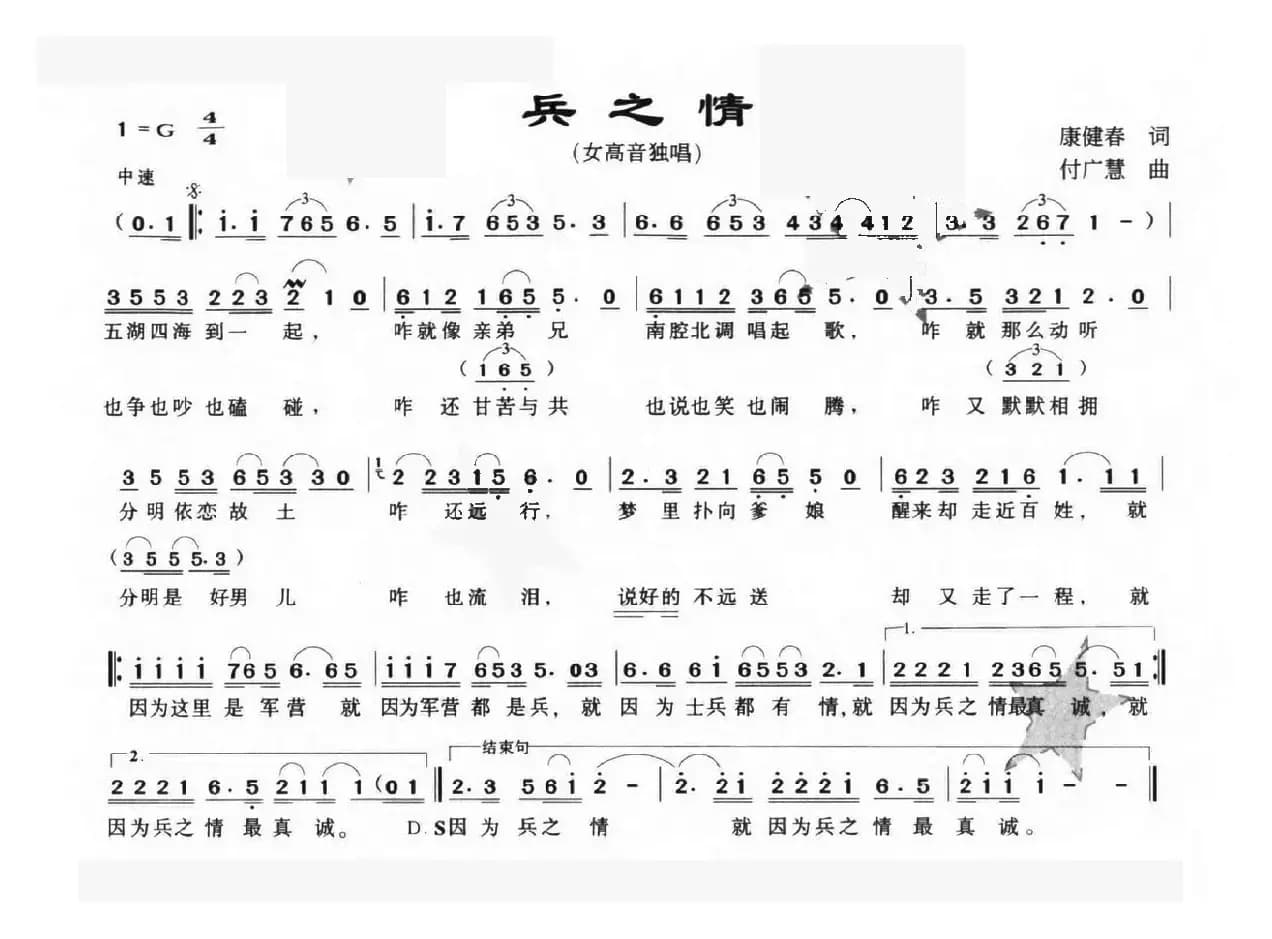 兵之情
(女高音独唱)
1=G 4/4
中速
康健春 词
付广慧 曲
3 3 3
(0.1 i.i 765 6.5 i.7 653 5.3 6.6 653 434 412 3.3 267 1-)
3553 223 2 1 0 612 165 5.0 6112 365 5.0 3.5 321 2.0
五湖四海 到一 起， 咋就像 亲弟 兄 南腔北调 唱起 歌， 咋 就 那么动听
3 3
(165) (321)
也争也吵 也磕 碰， 咋 还 甘苦与共 也说也笑 也闹 腾， 咋 又 默默相拥
3 5 53 653 330 1 2 231 5 6.0 2.3 21 65 50 623 216 1.11
分明依恋 故 土 咋 还远 行， 梦 里 扑向 爹 娘 醒来却 走近百 姓， 就
(3 55 5.3)
分明是 好男 儿 咋 也流 泪， 说好的 不远 送 却 又 走了一 程， 就
1.
iiii 765 6.65 iii7 6535.03 6.6 6i 6553 2.1 2221 2365 5.51
因为这里 是 军营 就 因为军营 都 是兵，就 因 为 士兵都 有 情，就 因为兵之 情最真 诚，就
2. 结束句
2221 6.5 211 1(01 2.3 561 2- 2.21 2221 6.5 2ii i--
因为兵之 情 最 真 诚。 D.S因 为 兵之 情 就 因为兵之 情 最 真 诚。